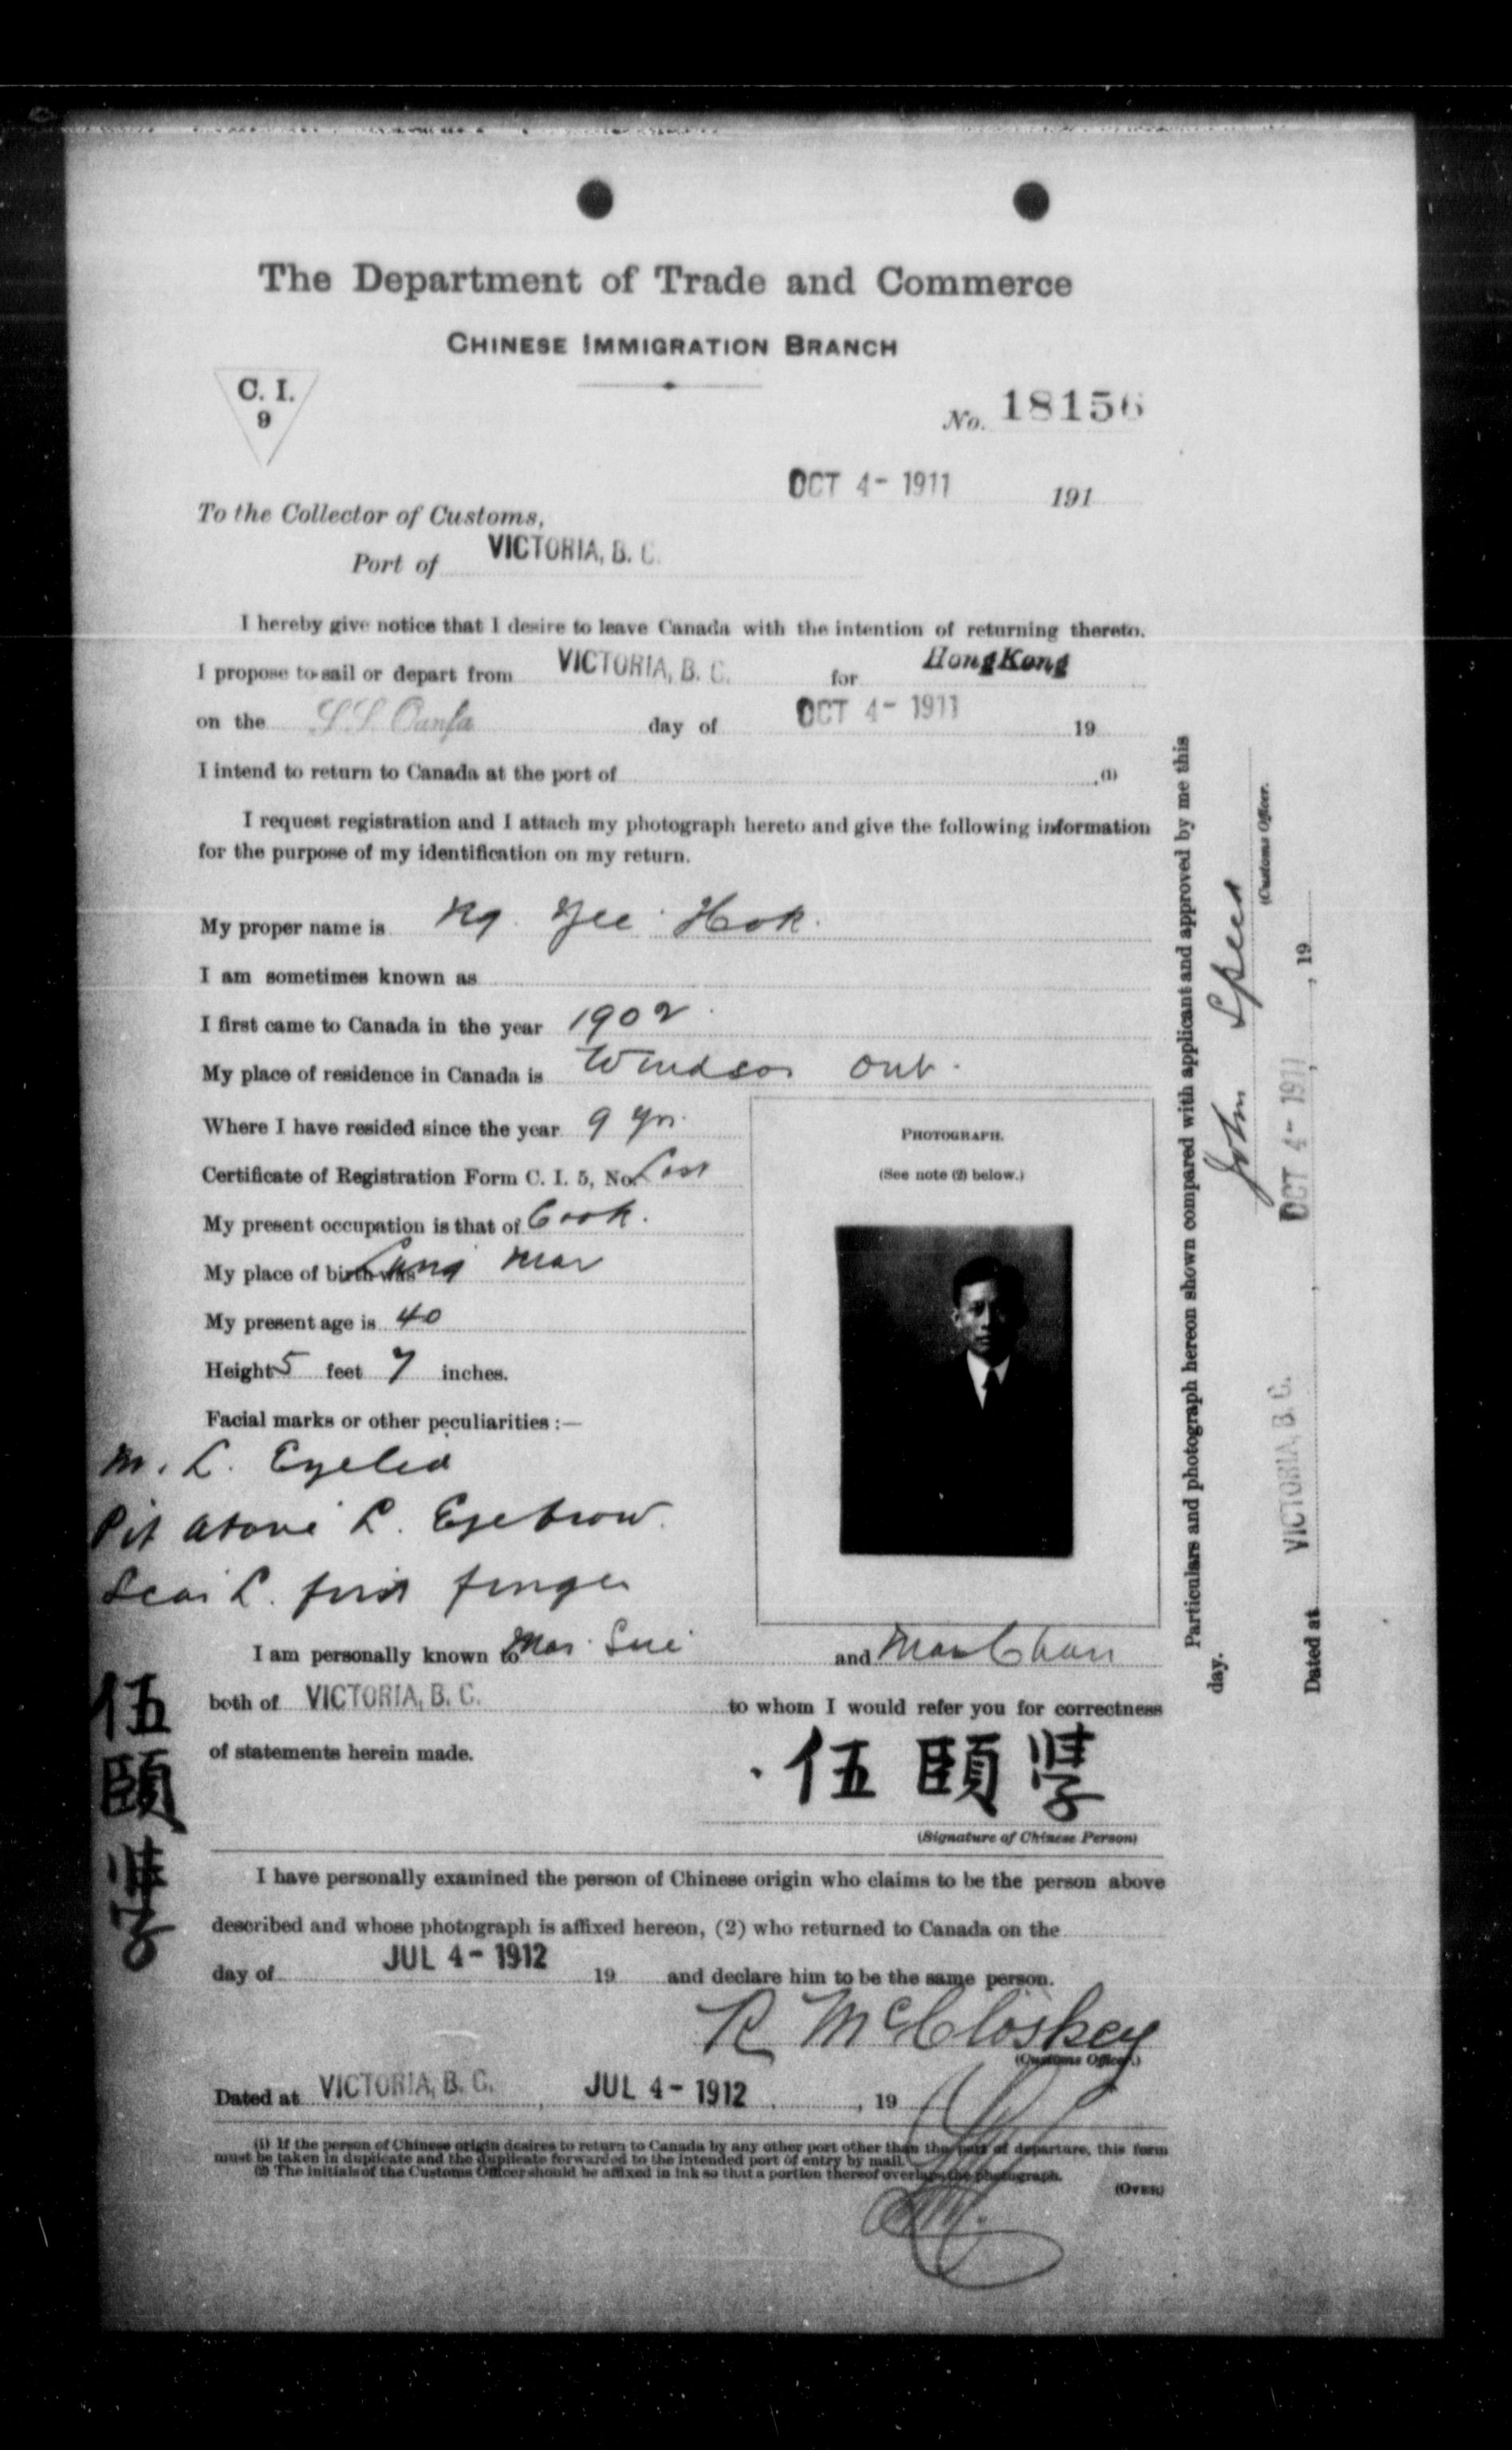 The Department of Trade and Commerce
CHINESE IMMIGRATION BRANCH
C. I.
9
No. 18156
OCT 4- 1911 191
To the Collector of Customs,
Port of VICTORIA, B. C.
I hereby give notice that I desire to leave Canada with the intention of returning thereto.
I propose to sail or depart from VICTORIA, B. C. for HongKong
on the S.S. Oanfa day of OCT 4- 1911 19
I intend to return to Canada at the port of .(1)
I request registration and I attach my photograph hereto and give the following information
for the purpose of my identification on my return.
My proper name is Ng Yee Hok.
I am sometimes known as
I first came to Canada in the year 1902
My place of residence in Canada is Windsor Ont.
Where I have resided since the year 9 yrs.
Certificate of Registration Form C. I. 5, No. Lost
My present occupation is that of Cook.
My place of birth was
My present age is 40
Height 5 feet 7 inches.
Facial marks or other peculiarities :—
M. L. Eyelid
Pit above L. Eyebrow.
Scar L. first finger
PHOTOGRAPH.
(See note (2) below.)
I am personally known to Mar Sue and Mar Chan
both of VICTORIA, B. C. to whom I would refer you for correctness
of statements herein made.
伍頤
伍頤
(Signature of Chinese Person)
I have personally examined the person of Chinese origin who claims to be the person above
described and whose photograph is affixed hereon, (2) who returned to Canada on the
day of JUL 4- 1912 19 and declare him to be the same person.
R McCloskey
(Customs Officer.)
Dated at VICTORIA, B. C., JUL 4- 1912, 19
(1) If the person of Chinese origin desires to return to Canada by any other port other than the port of departure, this form
must be taken in duplicate and the duplicate forwarded to the intended port of entry by mail.
(2) The initials of the Customs Officer should be affixed in ink so that a portion thereof overlaps the photograph.
(OVER)
Particulars and photograph hereon shown compared with applicant and approved by me this
day.
John Speed
(Customs Officer.
Dated at VICTORIA, B. C. OCT 4- 1911, 19